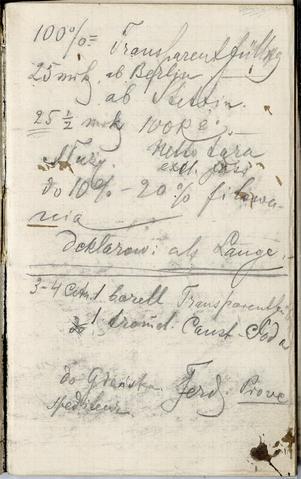 100%= Transparent füllg
25 mrk ab Berlin
ab Stettin.
25 1/2 mrk 100 Ko.
Netto Tara
excl.
do 10% - 20%
nia
deklarow: als Lauge.
3-4 Cnt. 1 barell Transparent
1 tromel. Caust. Soda
do Gdańska Ferd. Prove
spediteur